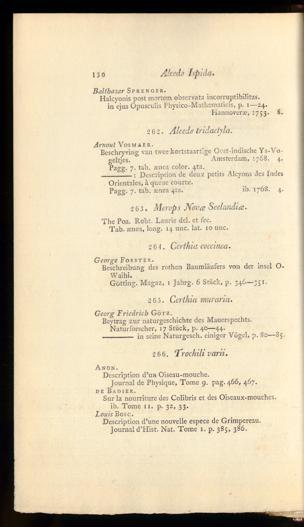 130 Alcedo Ispida.
Balthasar SPRENGER.
Halcyonis post mortem observata incorruptibilitas.
in ejus Opusculis Physico-Mathematicis, p. 1—24.
Hannoveræ, 1753. 8.
262. Alcedo tridactyla.
Arnout VOSMAER.
Beschryving van twee kortstaartige Oost-indische Ys-Vo-
geltjes. Amsterdam, 1768. 4.
Pagg. 7. tab. ænea color. 4ta.
———: Description de deux petits Alcyons des Indes
Orientales, à queue courte.
Pagg. 7. tab. ænea 4ta. ib. 1768. 4.
263. Merops Novæ Seelandiæ.
The Poa. Robt. Laurie del. et fec.
Tab. ænea, long. 14 unc. lat. 10 unc.
264. Certhia coccinea.
George FORSTER.
Beschreibung des rothen Baumläufers von der insel O-
Waihi.
Götting. Magaz. 1 Jahrg. 6 Stück, p. 346—351.
265. Certhia muraria.
Georg Friedrich GÖTZ.
Beytrag zur naturgeschichte des Mauerspechts.
Naturforscher, 17 Stück, p. 40—44.
——— in seine Naturgesch. einiger Vögel, p. 80—85.
266. Trochili varii.
ANON.
Description d'un Oiseau-mouche.
Journal de Physique, Tome 9. pag. 466, 467.
DE BADIER.
Sur la nourriture des Colibris et des Oiseaux-mouches.
ib. Tome 11. p. 32, 33.
Louis BOSC.
Description d'une nouvelle espece de Grimpereau.
Journal d'Hist. Nat. Tome 1. p. 385, 386.